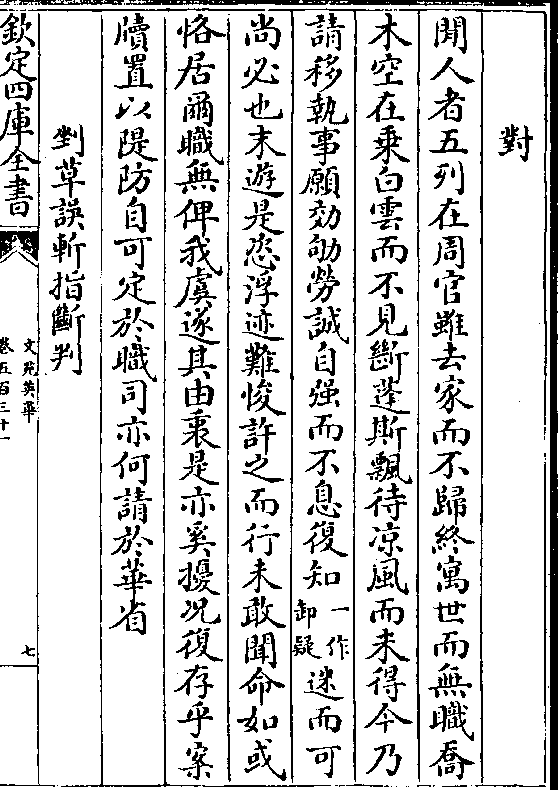 對
聞人者五列在周官雖去家而不歸終寓世而無職喬
木空在乗白雲而不見斷蓬斯飄待凉風而未得今乃
請移執事願効劬勞誠自强而不息復知一作卸疑迷而可
尚必也末遊是恣浮迹難悛許之而行未敢聞命如或
恪居爾職無俾我虞遂其由衷是亦奚擾况復存乎案
牘置以隄防自可定於職司亦何請於華省
剉草誤斬指斷判
欽定四庫全書
文苑英華
卷五百三十一
七